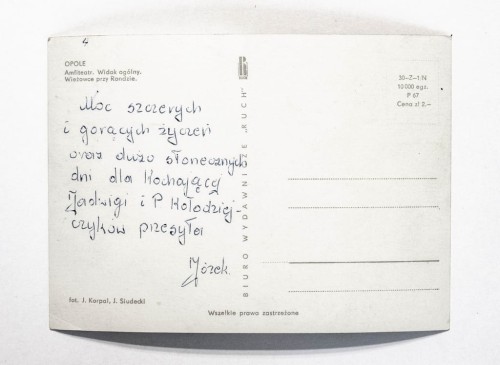 4
OPOLE
Amfiteatr. Widok ogólny.
Wieżowce przy Rondzie.
Moc szczerych
i gorących życzeń
oraz dużo słonecznych
dni dla Kochającej
Jadwigi i P Kołodziej-
czyków przesyła
Józek.
fot. J. Korpal, J. Siudecki
BIURO WYDAWNICZE „RUCH”
30-Z-1/N
10 000 egz.
P 67
Cena zł 2.-
Wszelkie prawa zastrzeżone